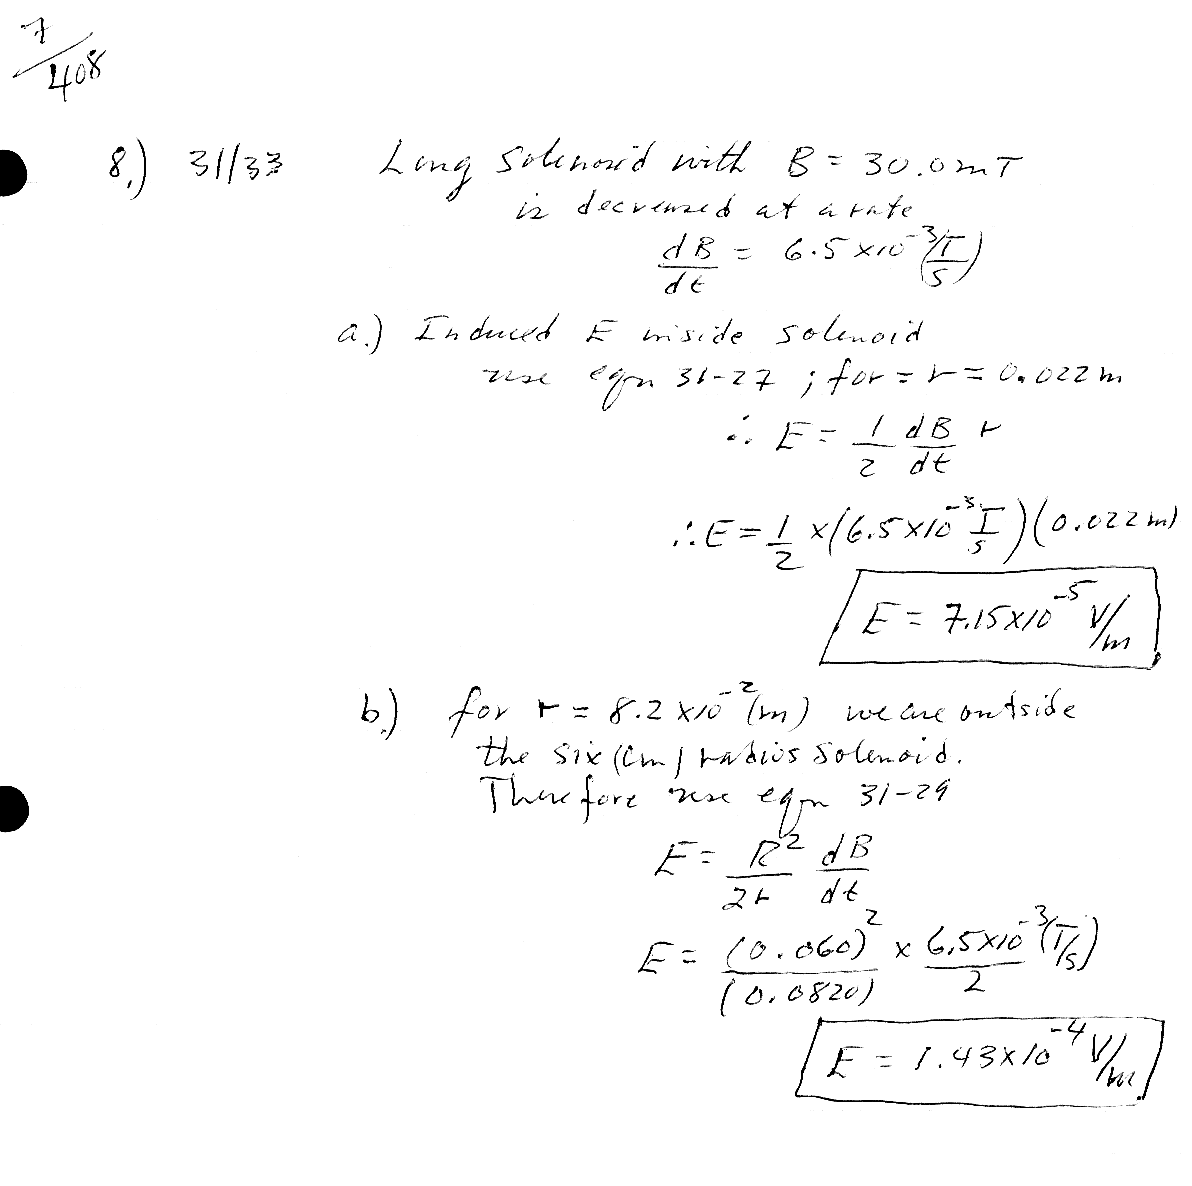 7/408
8.) 31//33 Long Solenoid with B = 30.0 mT
is decreased at a rate
dB/dt = 6.5 x10^-3 (T/s)
a.) Induced E inside solenoid
use eqn 31-27 ; for = r = 0.022 m
∴ E = 1/2 dB/dt r
∴ E = 1/2 x (6.5 x10^-3 T/s) (0.022 m)
E = 7.15 x10^-5 V/m
b.) for r = 8.2 x10^-2 (m) we are outside
the six (cm) radius solenoid.
Therefore use eqn 31-29
E = R^2/2r dB/dt
E = (0.060)^2/(0.0820) x 6.5x10^-3 (T/s)/2
E = 1.43 x10^-4 V/m